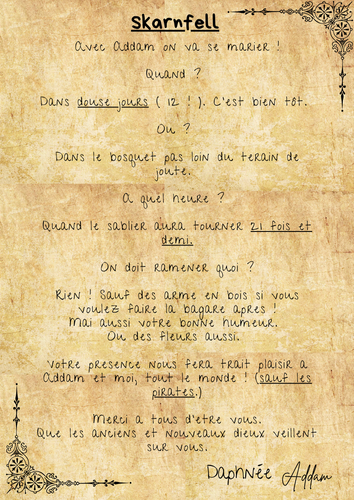 Skarnfell
Avec Addam on va se marier !
Quand ?
Dans douse jours ( 12 ! ). C'est bien tôt.
Ou ?
Dans le bosquet pas loin du terain de
joute.
A quel heure ?
Quand le sablier aura tourner 21 fois et
demi.
On doit ramener quoi ?
Rien ! Sauf des arme en bois si vous
voulez faire la bagare apres !
Mai aussi votre bonne humeur.
Ou des fleurs aussi.
Votre presence nous fera trait plaisir a
Addam et moi, tout le monde ! (sauf les
pirates.)
Merci a tous d'etre vous.
Que les anciens et nouveaux dieux veillent
sur vous.
Daphnée Addam